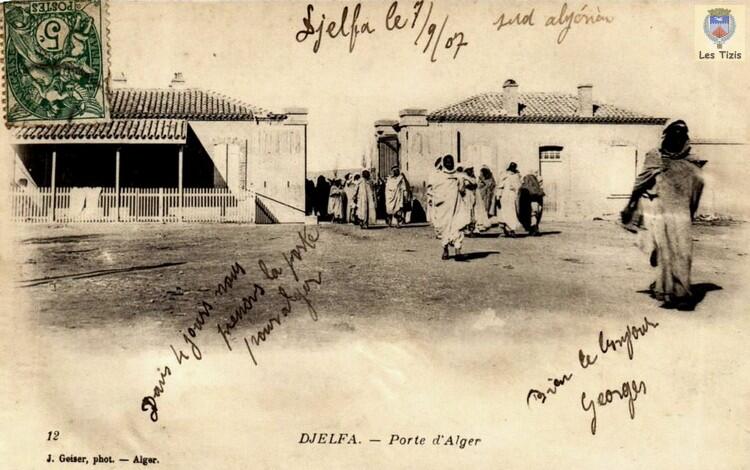 POSTES
5c
Djelfa le 7/9/07
sud algérien
Les Tizis
Dans 4 jours nous
prenons la porte
pour alger
Bien le bonjour
Georges
12
DJELFA. — Porte d'Alger
J. Geiser, phot. — Alger.